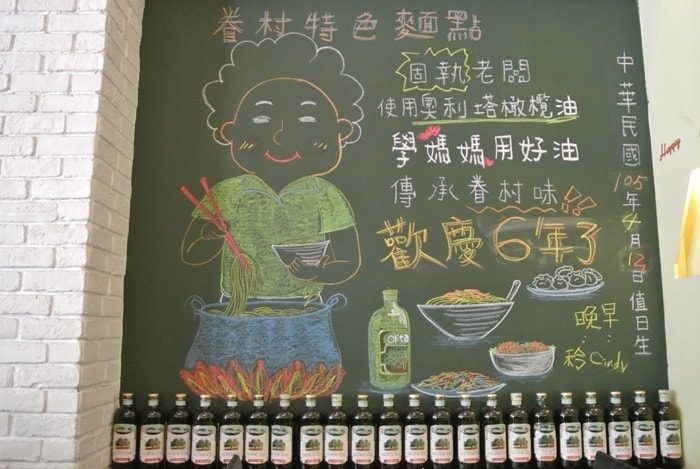 眷村特色麵點
固執老闆
使用奧利塔橄欖油
學媽媽用好油
傳承眷村味!!
歡慶6年了
中華民國105年4月12日值日生
晚早
Cindy
Happy